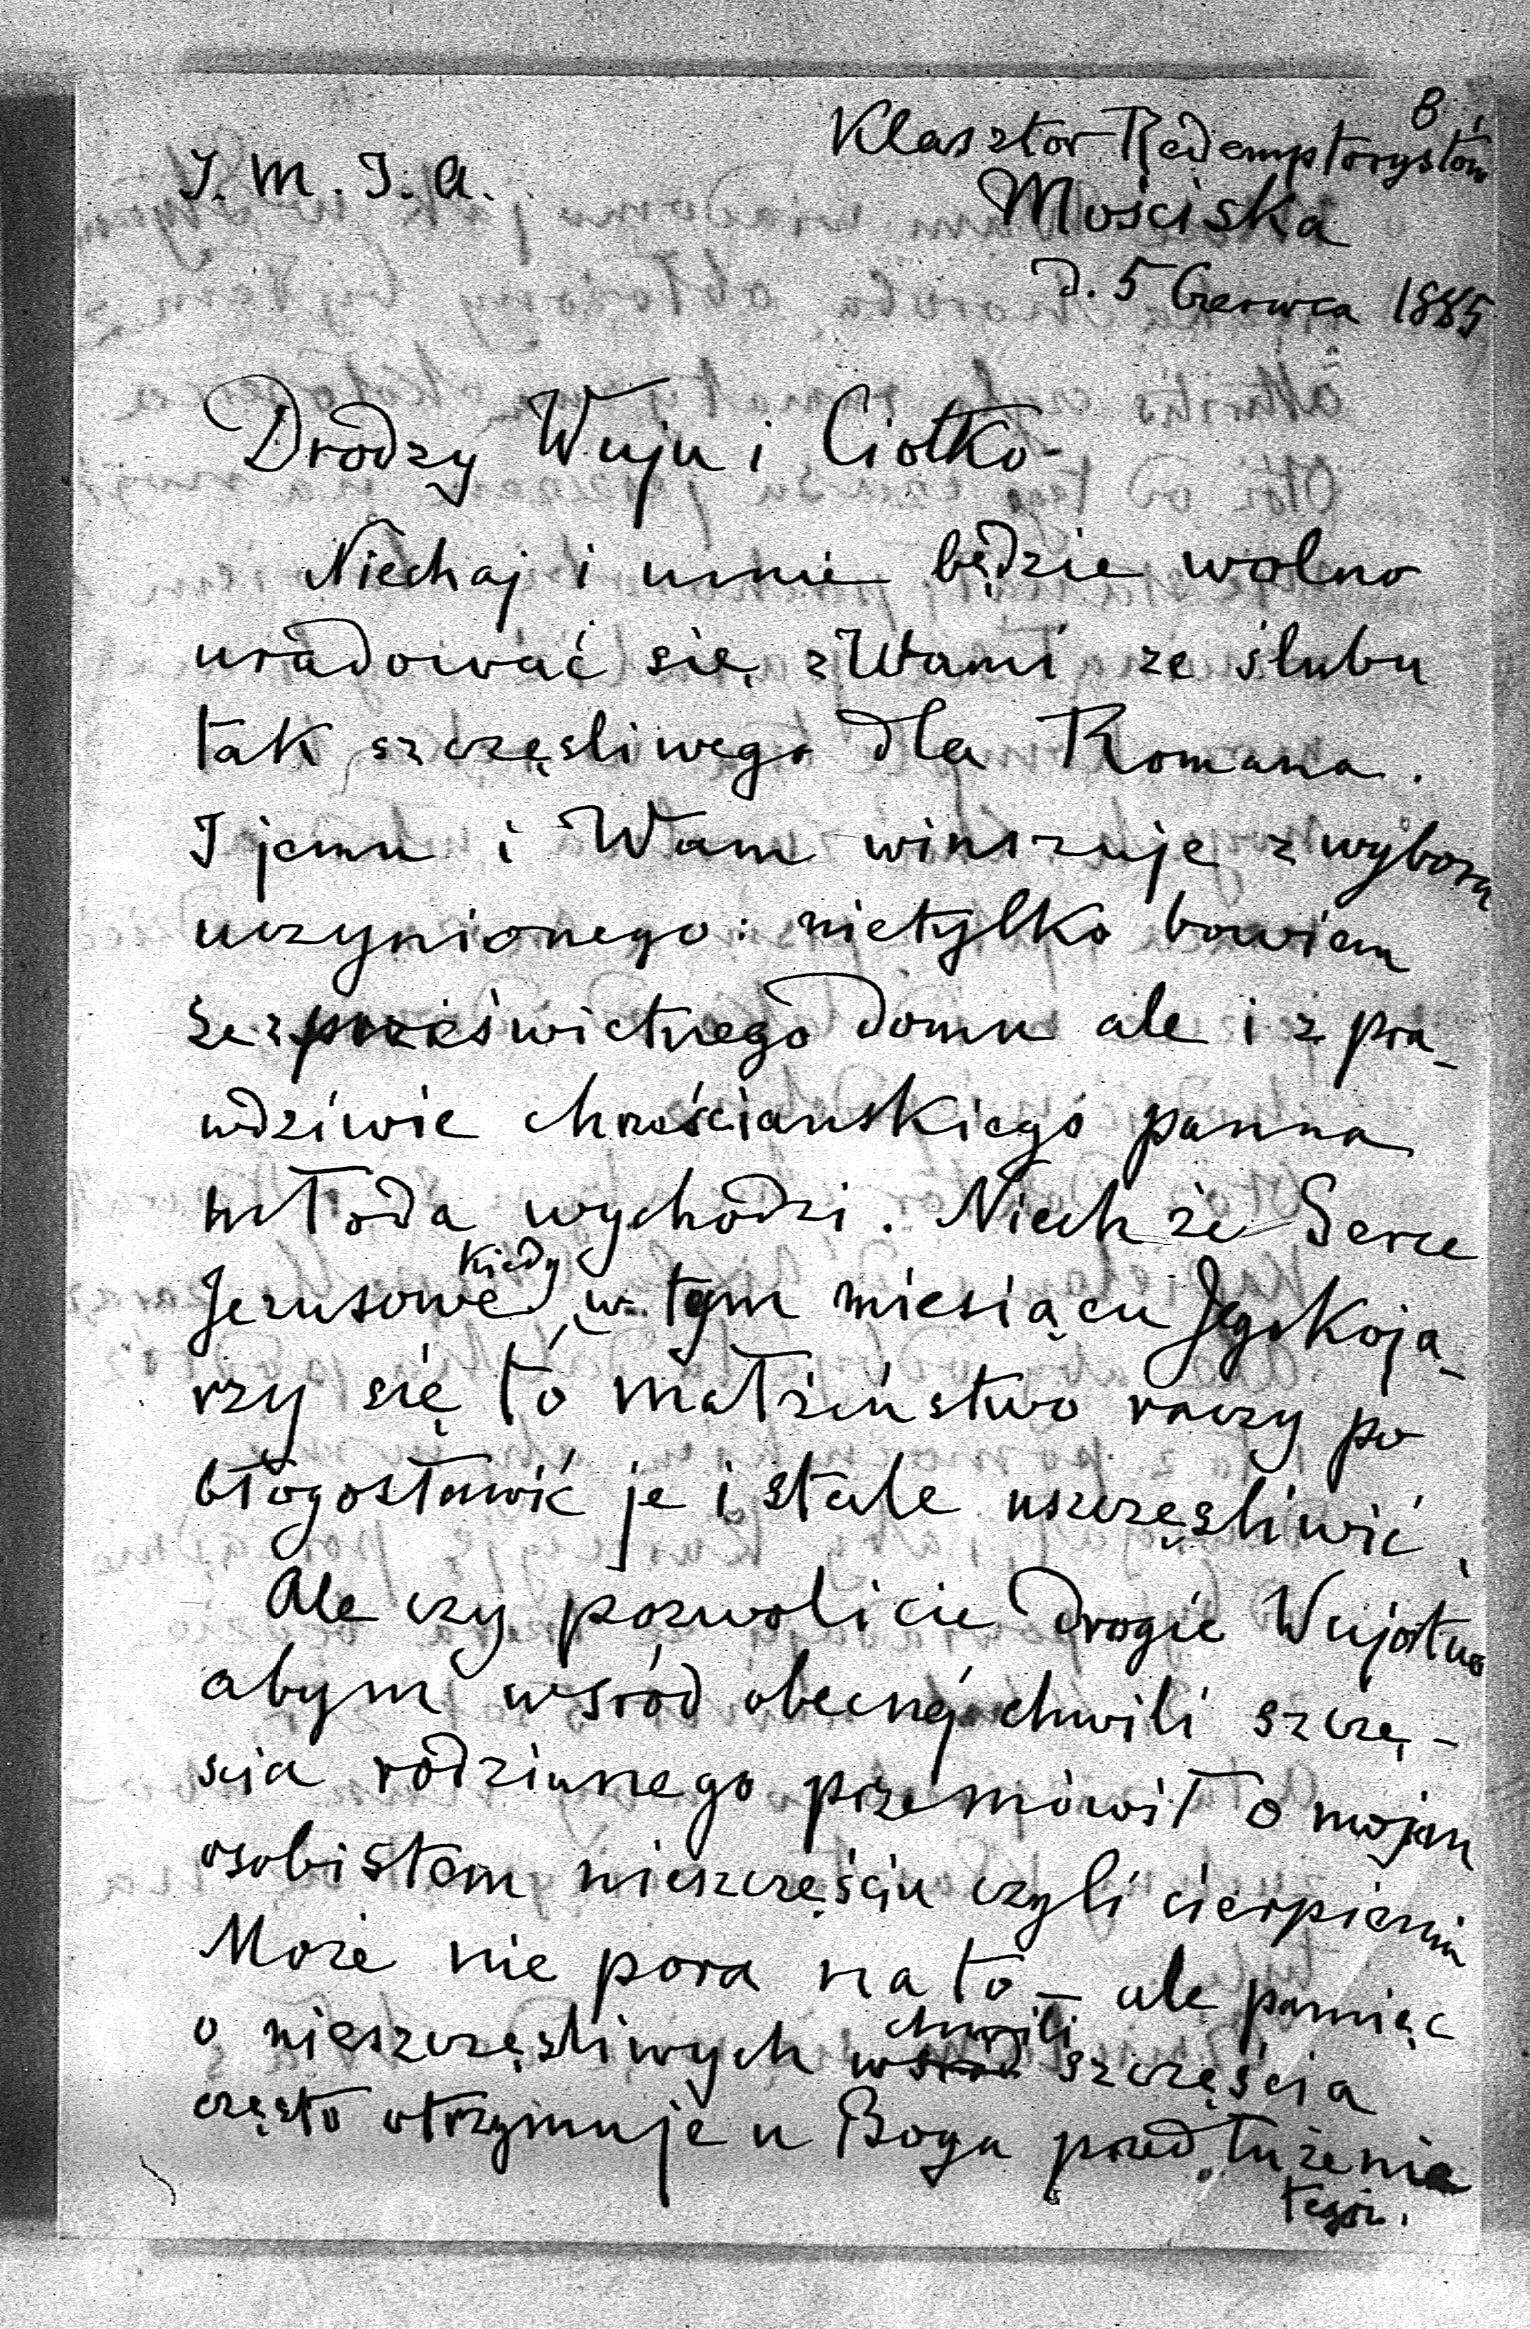 8.
Klasztor Redemptorystów
J. M. J. A.
Mościska
d. 5 Czerwca 1885
Drodzy Wuju i Ciotko
Niechaj i mnie będzie wolno
uradować się z Wami ze ślubu
tak szczęsliwego dla Romana.
I jemu i Wam winszuję z wyboru
uczynionego: nietylko bowiem
że z prześwietnego domu ale i z pra-
wdziwie chrześcianskiego panna
młoda wychodzi. Niech że Serce
Jezusowe kiedy w tym miesiącu Jego koja-
rzy się to małżeństwo raczy po
błogosławić je i stale uszczęsliwić.
Ale czy pozwolicie drogie Wujostwo
abym wsród obecnéj chwili szczę-
scia rodzinnego przemówił o mojem
osobistem nieszczęściu czyli cierpieniu
Może nie pora na to – ale pamięć
o nieszczęsliwych wsród chwili szczęścia
często otrzymuje u Boga przedłużenie
tegoż.